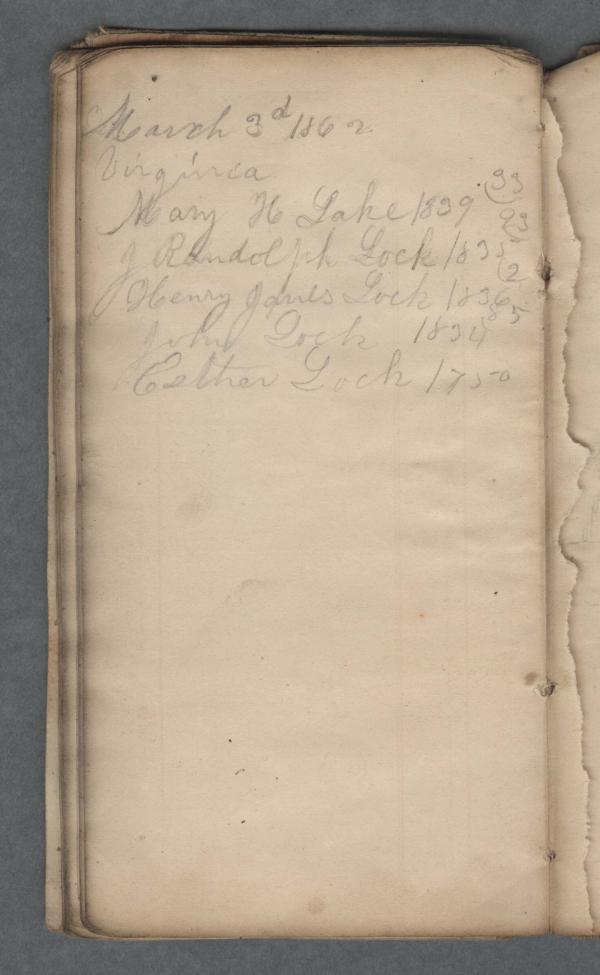 March 3d 1862
Virginia
Mary H Lake 1839 (33
93
J Randolph Lock 1835
(2
Henry Janes Lock 1836
85
John Lock 1834
Esther Lock 1750